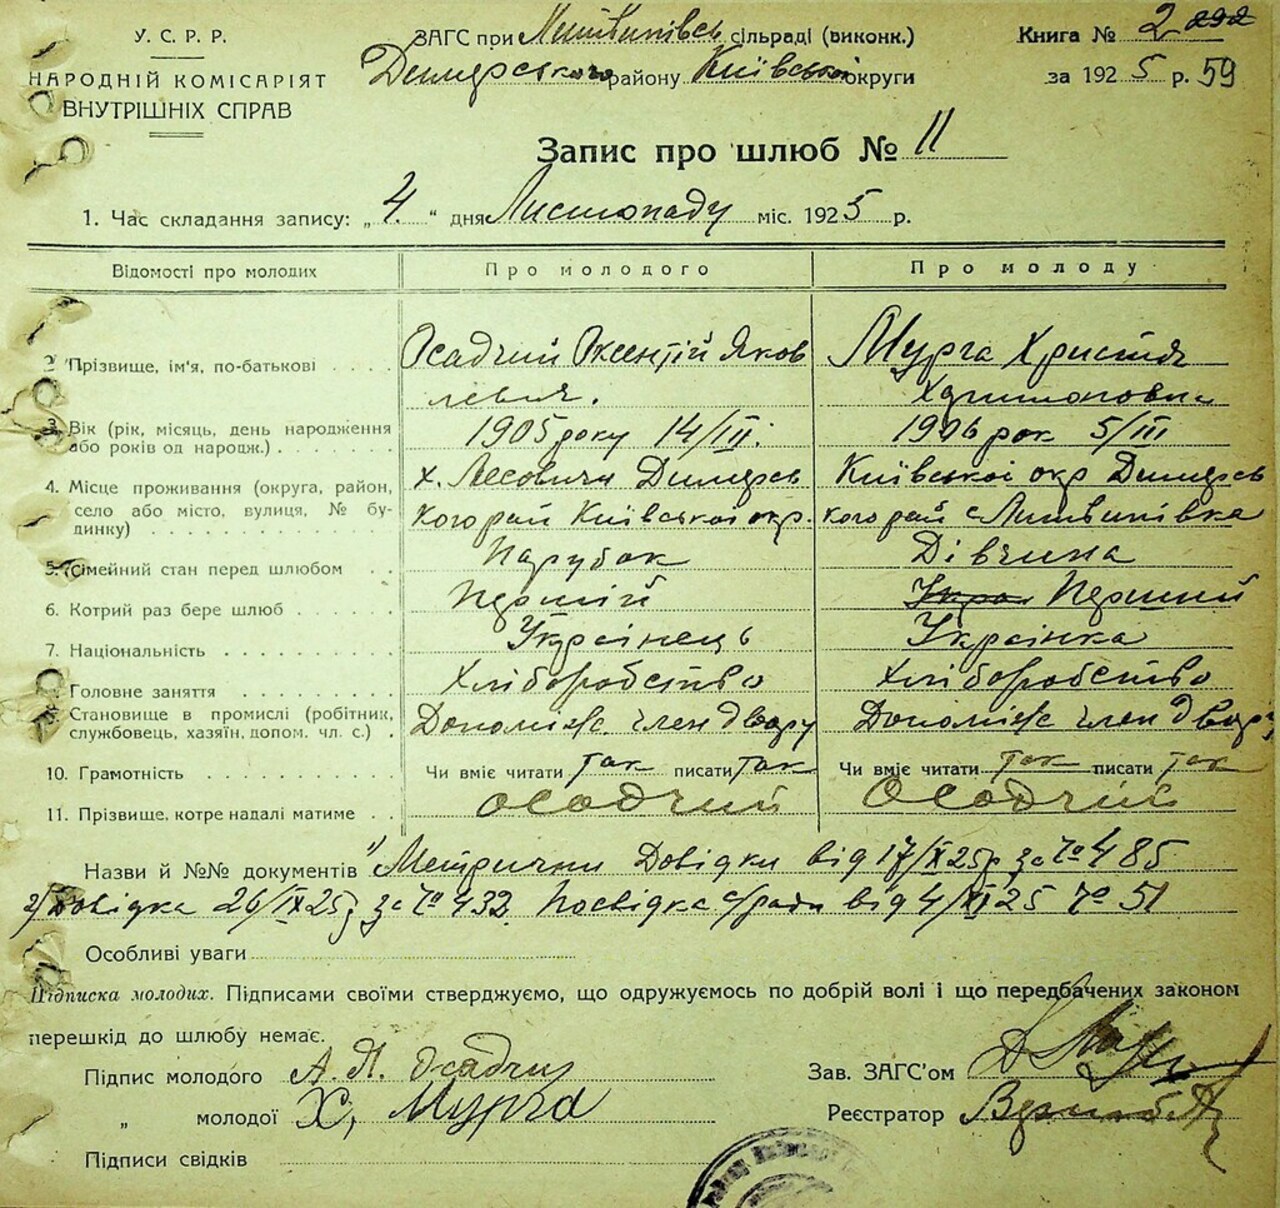 У. С. Р. Р.
НАРОДНІЙ КОМІСАРІЯТ
ВНУТРІШНІХ СПРАВ
ЗАГС при Литвинівськ сільраді (виконк.)
Димерського району Київської округи
Книга № 2 292
за 1925 р. 59
Запис про шлюб № 11
1. Час складання запису: „4.“ дня Листопаду міс. 1925 р.
Відомості про молодих Про молодого Про молоду
2. Прізвище, ім'я, по-батькові Осадчий Оксентій Яков Мурга Христя
левич. Харитоновна
3. Вік (рік, місяць, день народження 1905 року 14/III. 1906 рок 5/III
або років од народж.)
4. Місце проживання (округа, район, х. Лесовичи Димерсь Київської окр Димерсь
село або місто, вулиця, № бу- кого рай Київської окр. кого рай с Литвинівка
динку)
5. Сімейний стан перед шлюбом Парубок Дівчина
6. Котрий раз бере шлюб Перший Укра Перший
7. Національність Українець Українка
8. Головне заняття Хліборобство Хліборобство
9. Становище в промислі (робітник, Допоміж. член двору Допоміж. член двору
службовець, хазяїн, допом. чл. с.)
10. Грамотність Чи вміє читати так писати так Чи вміє читати так писати так
11. Прізвище, котре надалі матиме Осадчий Осадчий
Назви й №№ документів Метрични Довідки від 17/IX 25 р за № 485
2) Довідка 26/IX 25 р за № 432 Посвідка с/ради від 4/XI 25 № 51
Особливі уваги
Підписка молодих. Підписами своїми стверджуємо, що одружуємось по добрій волі і що передбачених законом
перешкід до шлюбу немає.
Підпис молодого А. Я. Осадчий
Зав. ЗАГС'ом
„ молодої Х, Мурга
Реєстратор
Підписи свідків